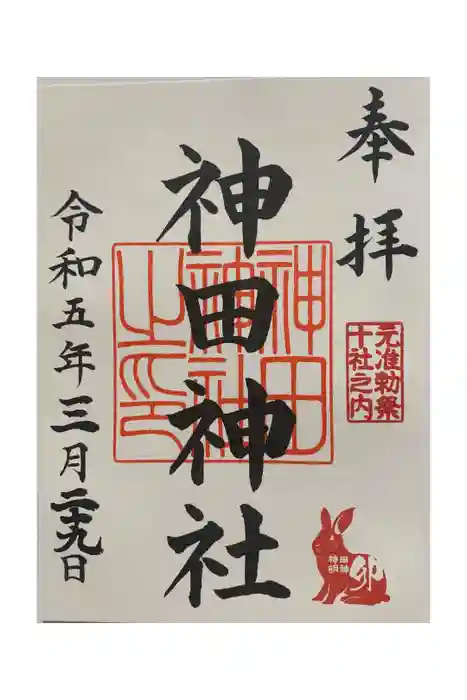 奉拝
元准勅祭
十社之内
神田神社
神田
神社
之印
令和五年三月二十九日
神田
明神
卯